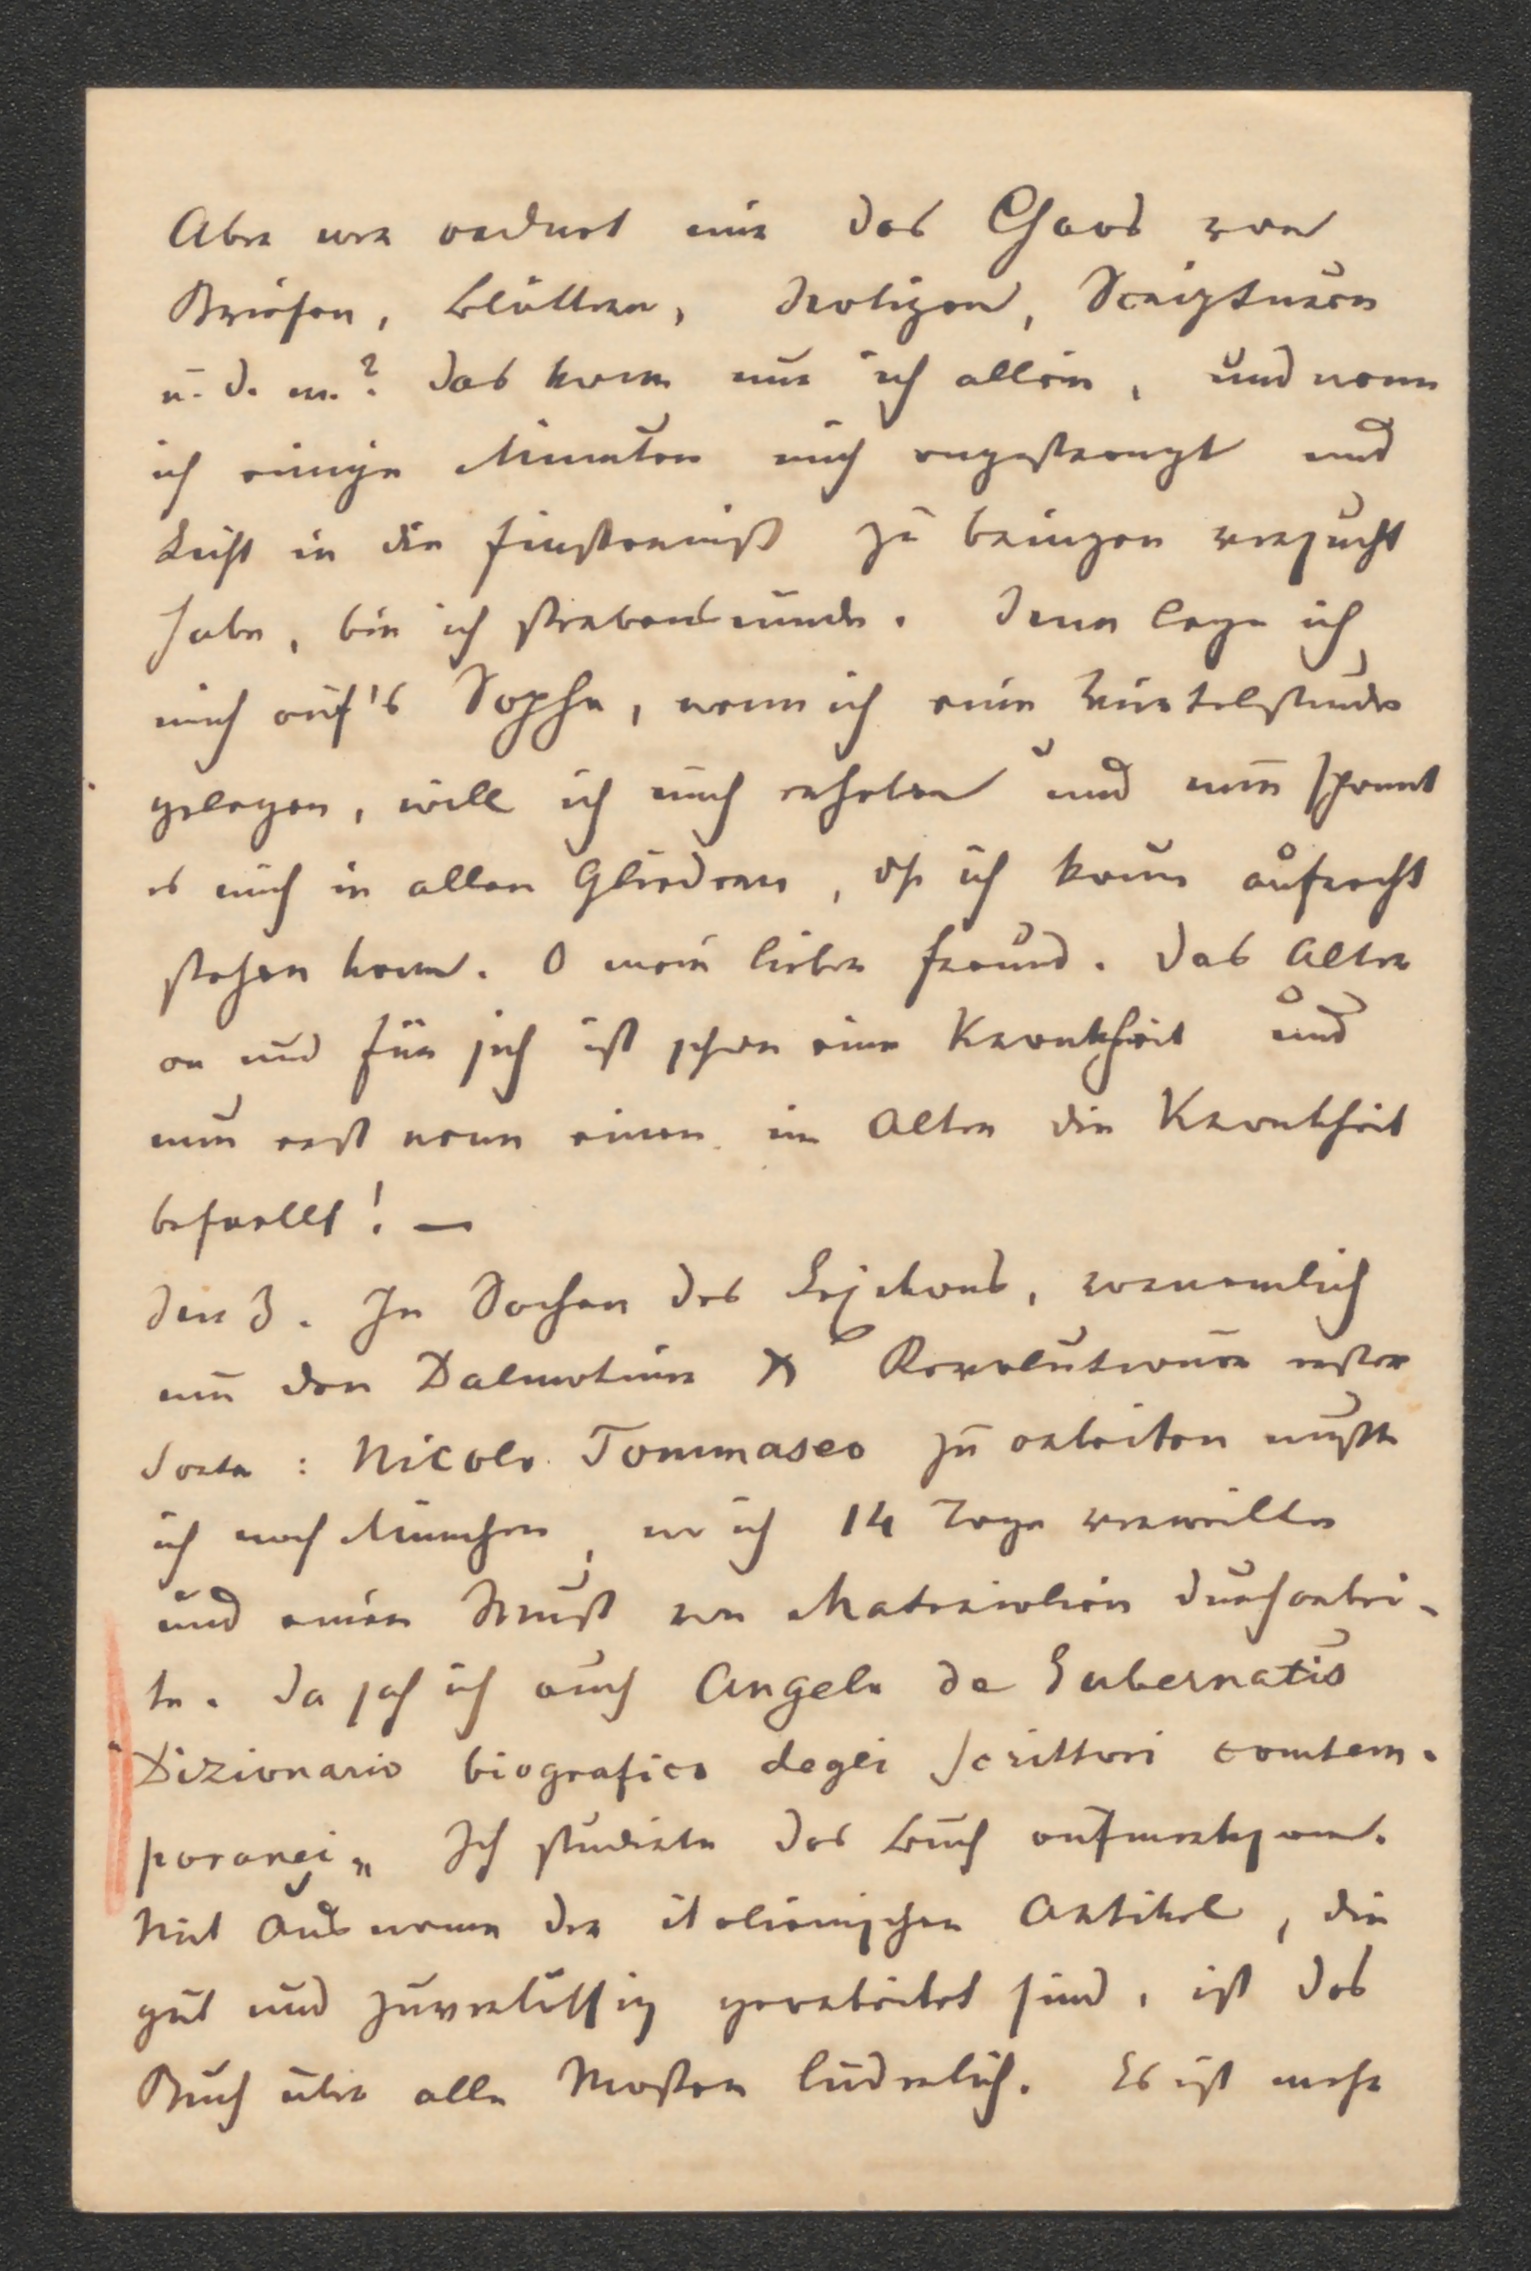 Aber wer ordnet mir das Chaos von
Briefen, Blättern, Notizen, Scripturen
u. d. m.? Das kann nur ich allein, und wenn
ich einige Minuten mich angestrengt und
Licht in die Finsterniß zu bringen versucht
habe, bin ich sterbensmüde. Dann lege ich
mich auf's Sopha, wenn ich eine Viertelstunde
gelegen, will ich mich erheben und nun spannt
es mich in allen Gliedern, daß ich kaum aufrecht
stehen kann. O mein lieber Freund. Das Alter
an und für sich ist schon eine Krankheit und
nun erst wenn einen im Alter die Krankheit
befaellt! —
Den 3. In Sachen des Lexikons, vornemlich
um den Dalmatiner & Revolutionär erster
Sorte: Nicolo Tommaseo zu arbeiten mußte
ich nach München, wo ich 14 Tage verweilte
und einen Wust von Materialien durcharbei-
te. Da sah ich auch Angelo de Gubernatis
Dizionario biografico degli scrittori comtem-
poranei„ Ich studirte das Buch aufmerksam.
Mit Ausname der italienischen Artikel, die
gut und zuverlässig gearbeitet sind, ist das
Buch über alle Massen lüderlich. Es ist mehr